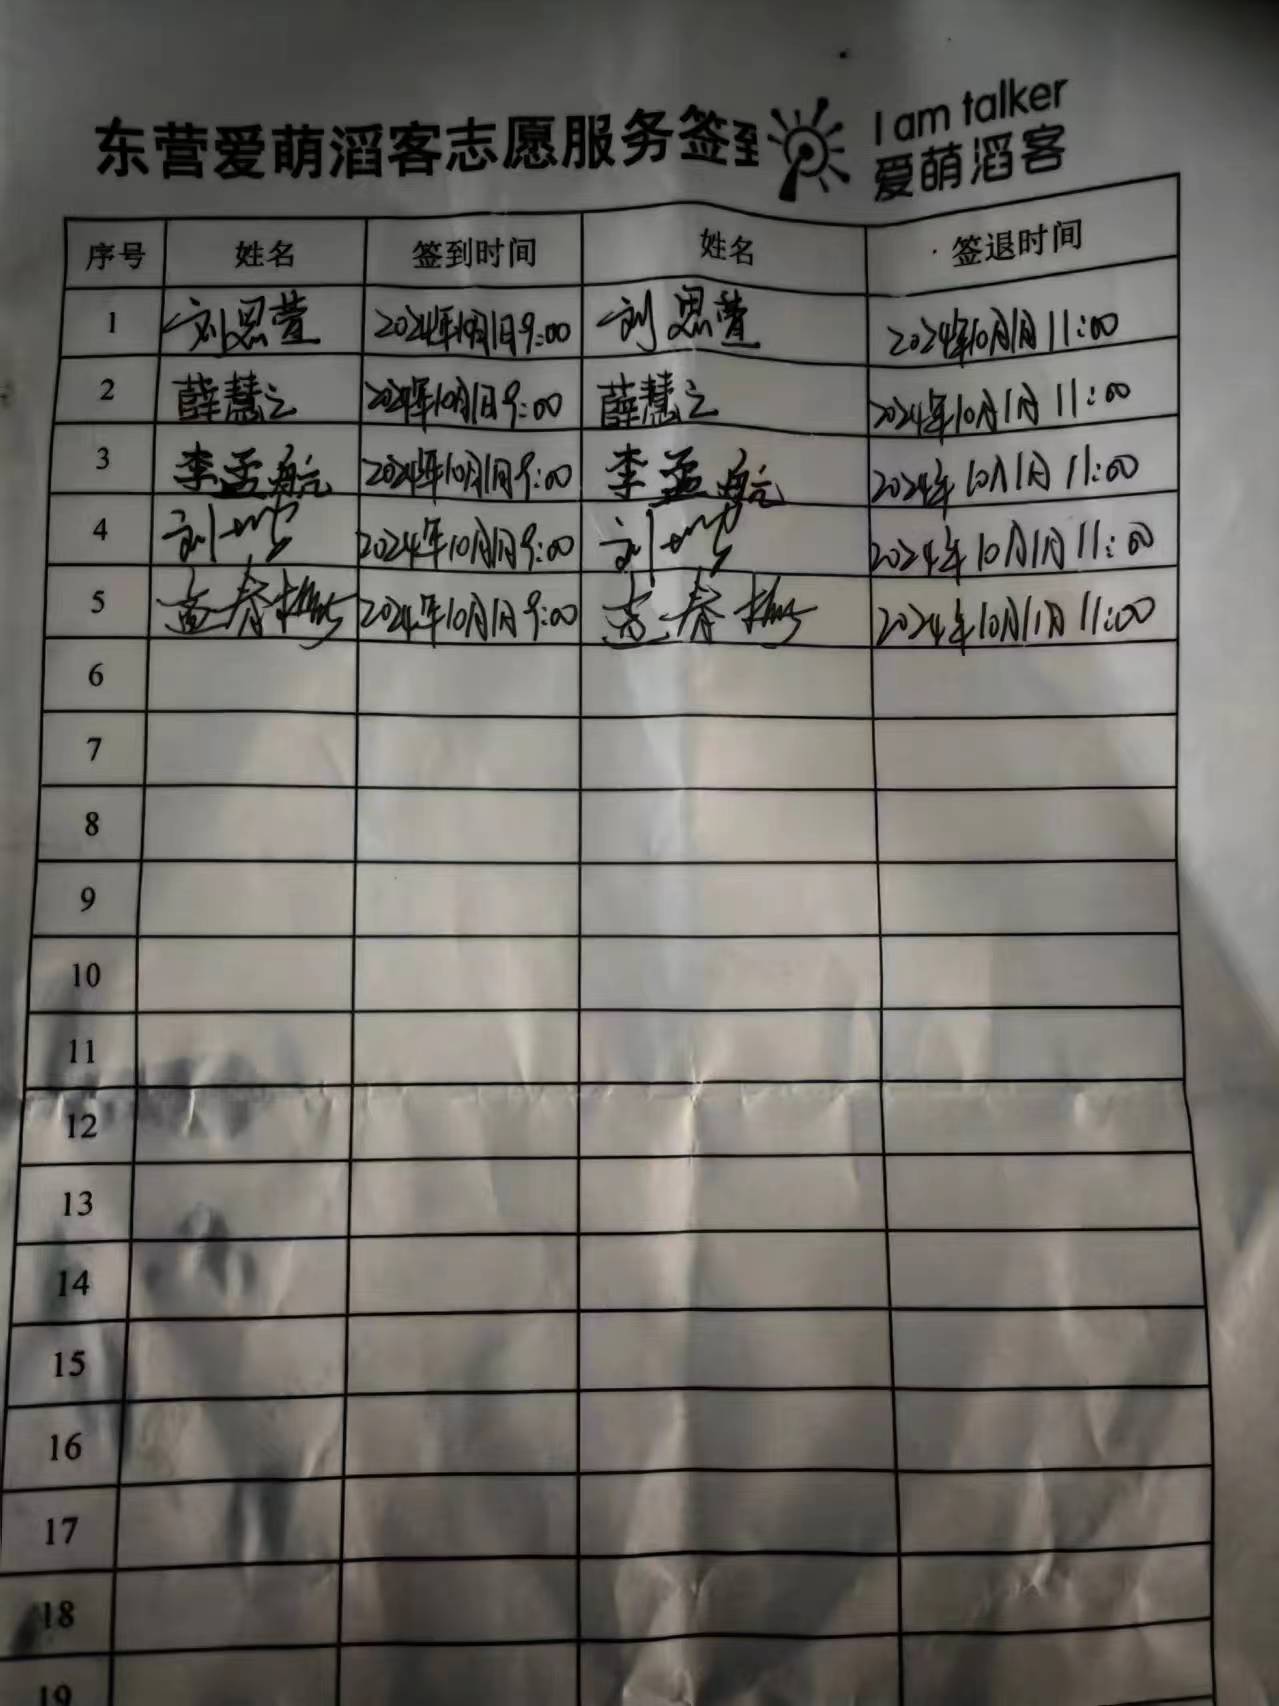 东营爱萌滔客志愿服务签到
I am talker
爱萌滔客
序号 姓名 签到时间 姓名 签退时间
1 刘思萱 2024年10月1日9:00 刘思萱 2024年10月1日11:00
2 薛慧之 2024年10月1日9:00 薛慧之 2024年10月1日11:00
3 李孟航 2024年10月1日9:00 李孟航 2024年10月1日11:00
4 刘 2024年10月1日9:00 刘 2024年10月1日11:00
5 春梅 2024年10月1日9:00 春梅 2024年10月1日11:00
6
7
8
9
10
11
12
13
14
15
16
17
18
19